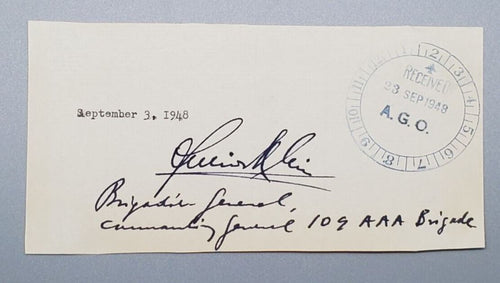 September 3, 1948
Julius Klein
Brigadier General,
Commanding General 109 AAA Brigade
RECEIVED
23 SEP 1948
A.G.O.
2 3 4 5 6 7 8 9 10 11